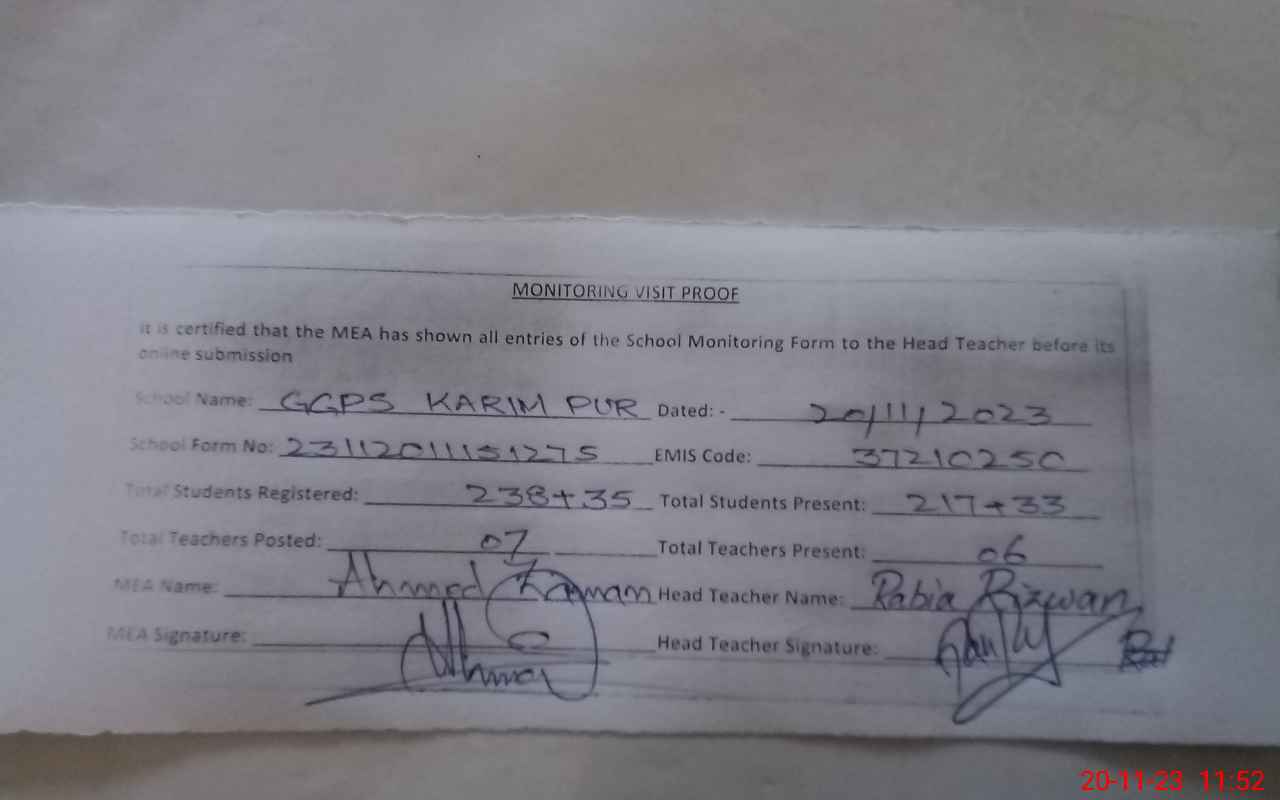 MONITORING VISIT PROOF
It is certified that the MEA has shown all entries of the School Monitoring Form to the Head Teacher before its
online submission
School Name: GGPS KARIM PUR Dated: - 20/11/2023
School Form No: 23112011151275 EMIS Code: 37210250
Total Students Registered: 238+35 Total Students Present: 217+33
Total Teachers Posted: 07 Total Teachers Present: 06
MEA Name: Ahmed Zaman Head Teacher Name: Rabia Rizwan
MEA Signature: Head Teacher Signature:
20-11-23 11:52